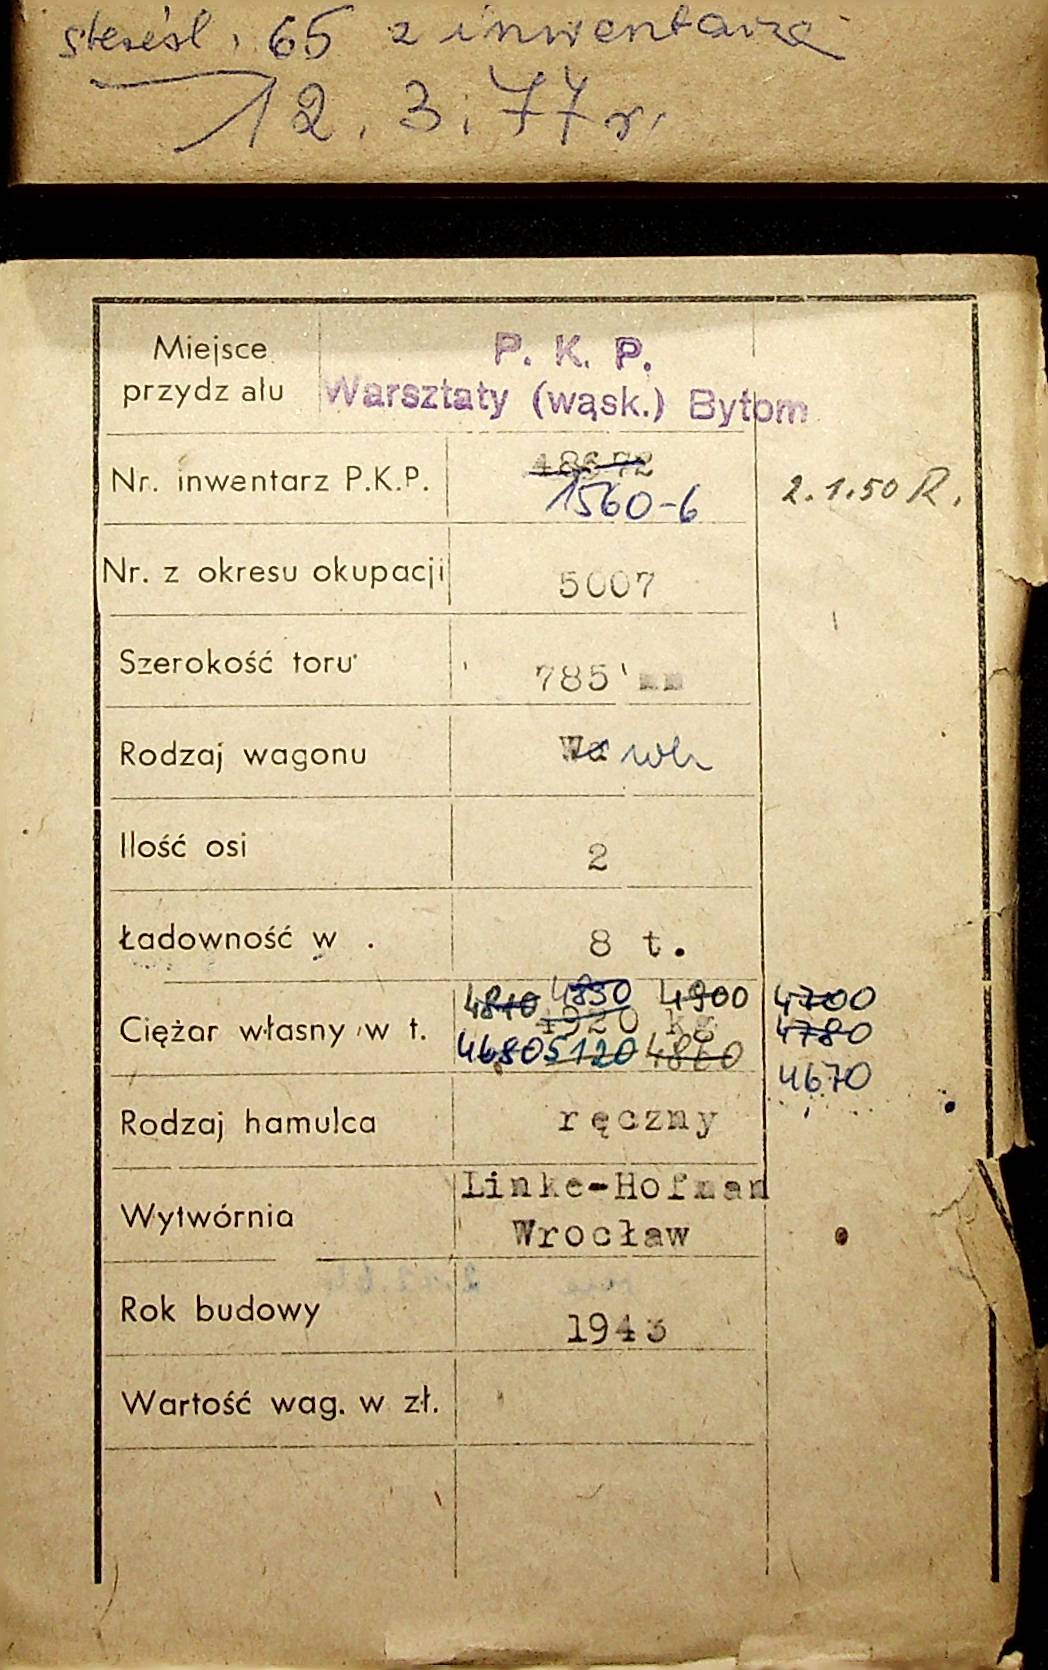 skreśl. 65 z inwentarza
12.3.77 r.
Miejsce P. K. P.
przydz ału Warsztaty (wąsk.) Bytom
48672
Nr. inwentarz P.K.P. 1560-6 2.1.50 R.
Nr. z okresu okupacji 5007
Szerokość toru 785 mm
Rodzaj wagonu Wd wh
Ilość osi 2
Ładowność w . 8 t.
4810 4850 4900 4700
Ciężar własny w t. 4920 kg 4780
4680 5120 4860 4670
Rodzaj hamulca ręczny
Linke-Hofman
Wytwórnia Wrocław
Rok budowy 1943
Wartość wag. w zł.